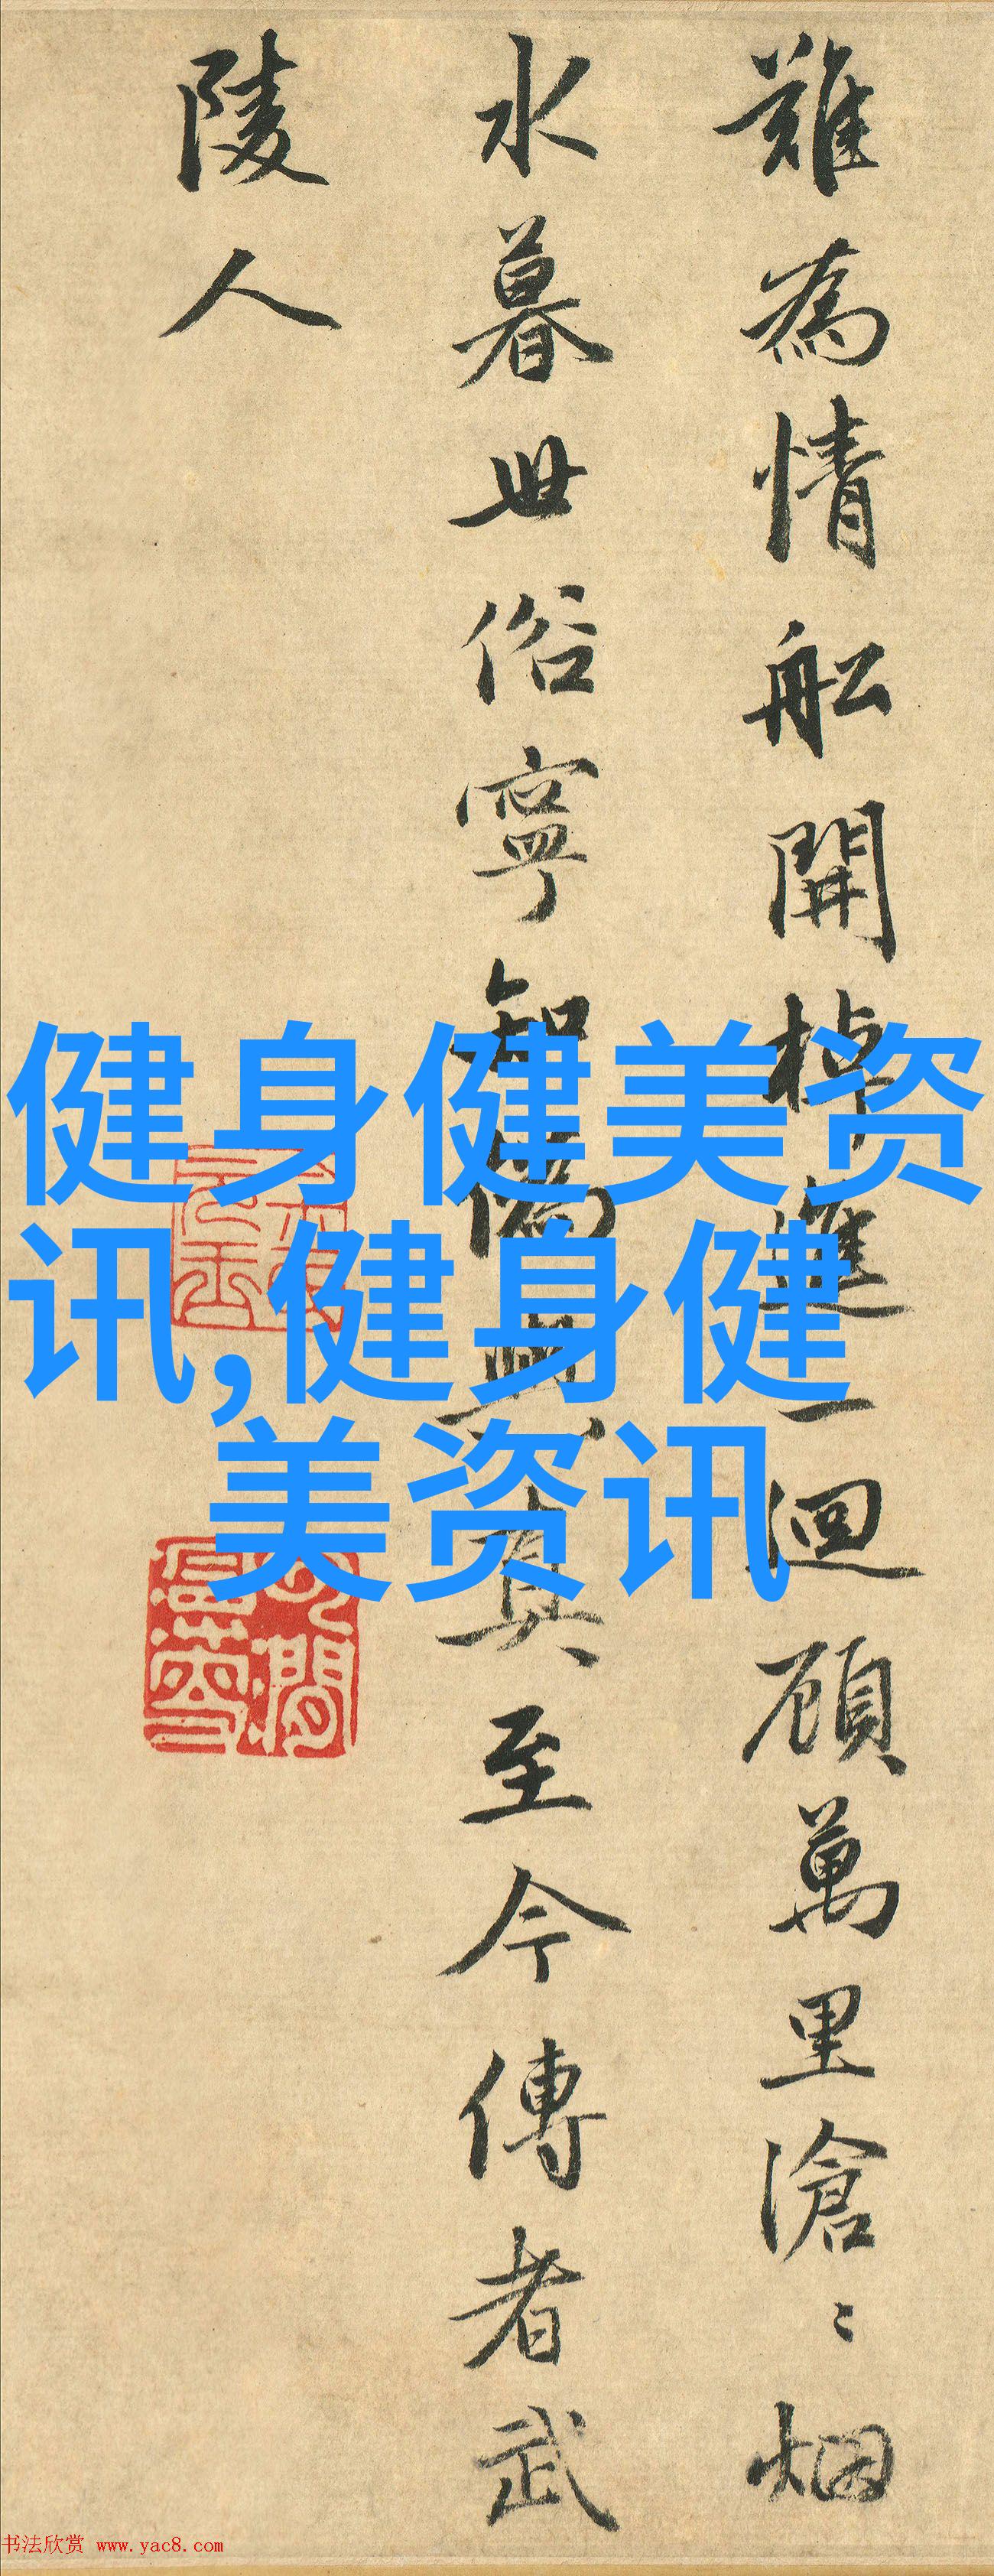 難為情舩開棹進一迴顧萬里滄〻烟
水暮世俗寧知偽與真至今傳者武
陵人
健身健美资
讯,健身健
美资讯
书法欣赏 www.yac8.com